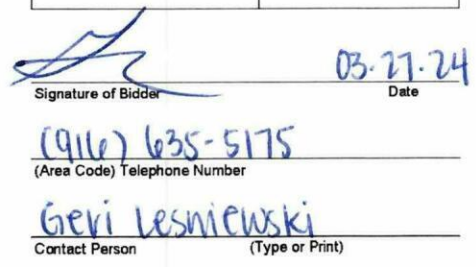 03.27.24
Signature of Bidder Date
(916) 635-5175
(Area Code) Telephone Number
Geri Lesniewski
Contact Person (Type or Print)